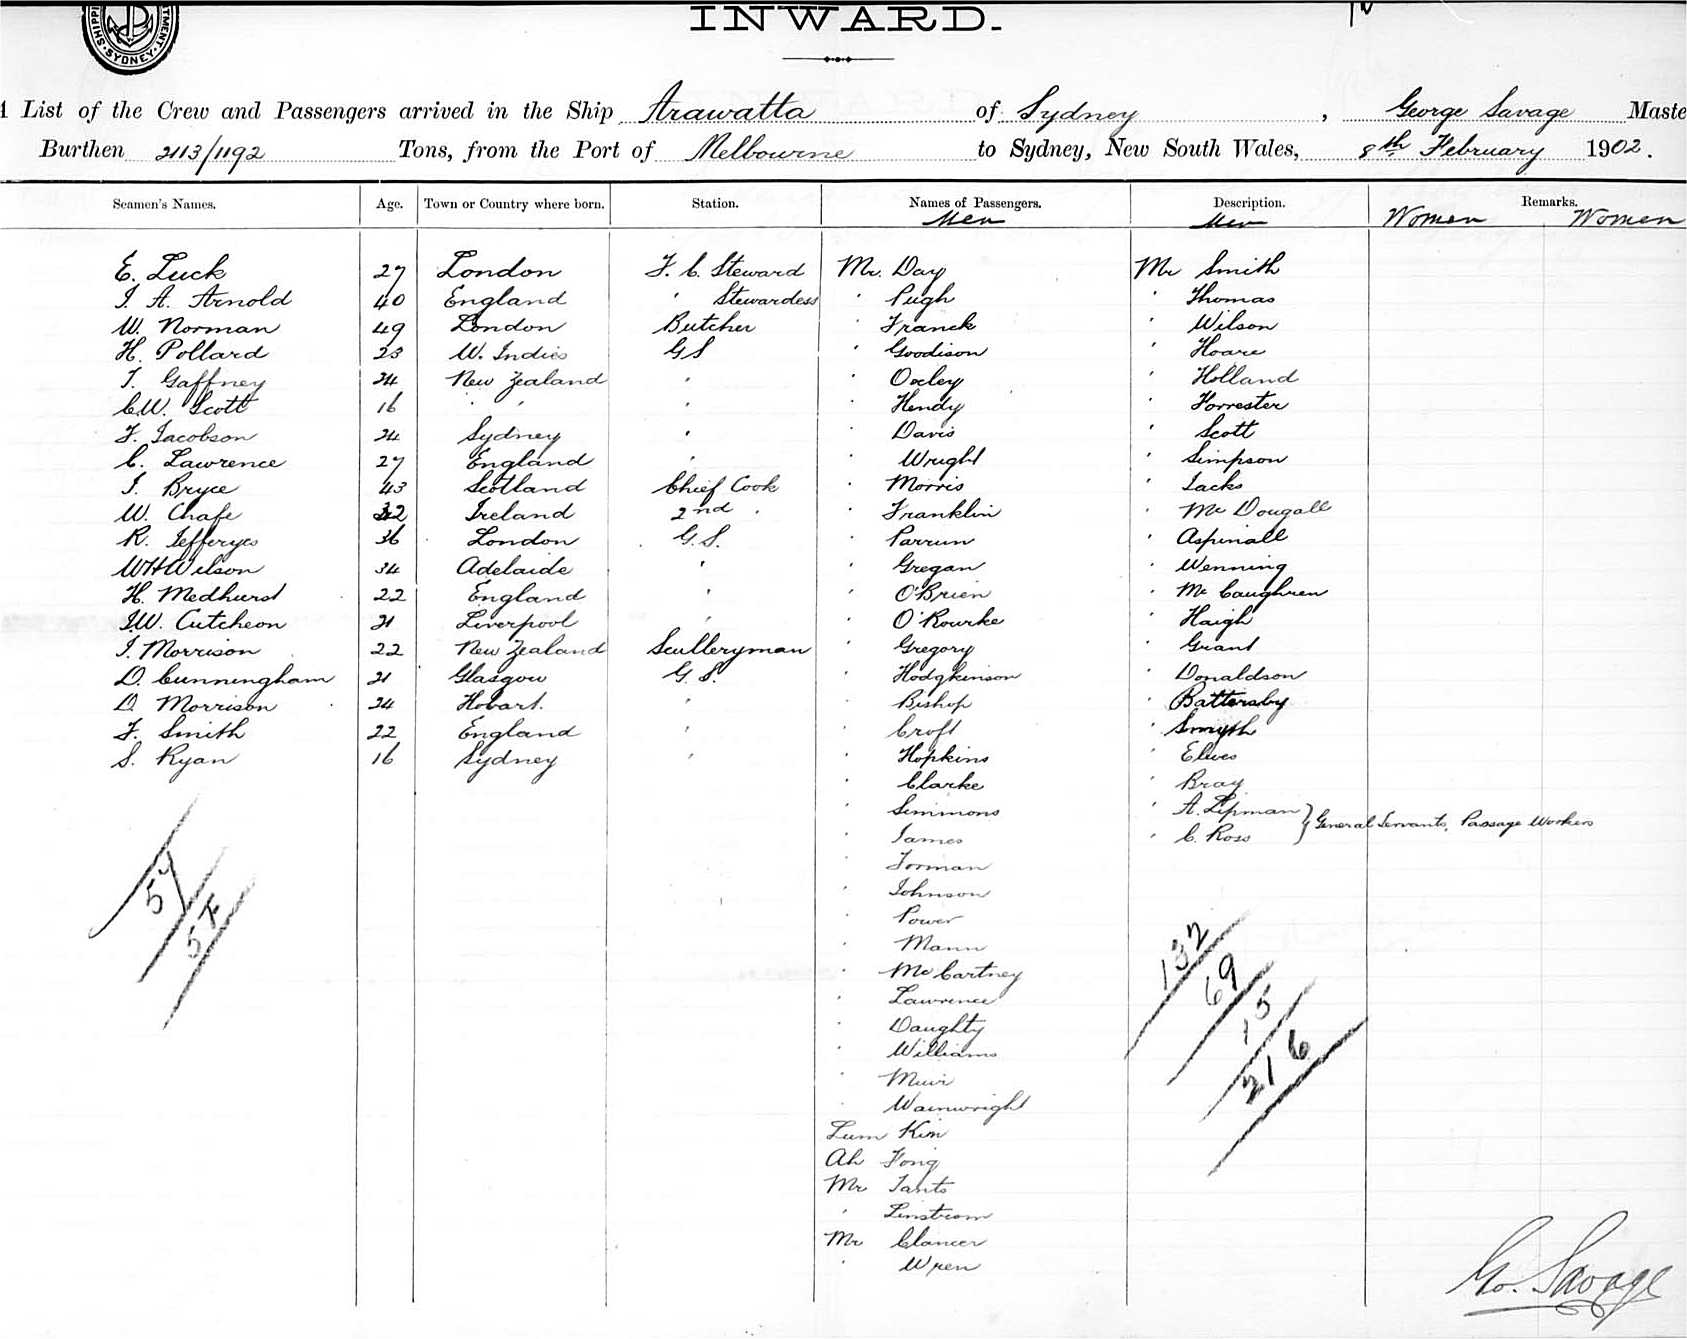 SHIPPING DEPARTMENT. SYDNEY.
INWARD.
List of the Crew and Passengers arrived in the Ship Arawatta of Sydney, George Savage Maste
Burthen 2113/1192 Tons, from the Port of Melbourne to Sydney, New South Wales, 8th February 1902.
Seamen's Names. Age. Town or Country where born. Station. Names of Passengers. Description. Remarks.
Men Men Women Women
E. Luck 27 London F. C. Steward Mr. Day Mr Smith
J. A. Arnold 40 England " Stewardess " Pugh " Thomas
W. Norman 49 London Butcher " Franck " Wilson
H. Pollard 23 W. Indies GS " Goodison " Hoare
J. Gaffney 24 New Zealand " " Oxley " Holland
C.W. Scott 16 " " " " Hendy " Forrester
F. Jacobson 24 Sydney " " Davis " Scott
C. Lawrence 27 England " " Wright " Simpson
J. Bryce 43 Scotland Chief Cook " Morris " Jacks
W. Chafe 32 Ireland 2nd " " Franklin " McDougall
R. Jefferyes 36 London G.S. " Parrun " Aspinall
WHWilson 34 Adelaide " " Gregan " Wenning
H. Medhurst 22 England " " O'Brien " McCaughren
J.W. Cutcheon 21 Liverpool " " O'Rourke " Haigh
J. Morrison 22 New Zealand Sculleryman " Gregory " Grant
D. Cunningham 21 Glasgow G.S. " Hodgkinson " Donaldson
D. Morrison 24 Hobart. " " Bishop " Battersby
F. Smith 22 England " " Croft " Smyth
S. Ryan 16 Sydney " " Hopkins " Elwes
" Clarke " Bray
" Simmons " A. Lipman
" James " C. Ross } General Servants, Passage Workers
" Forman
" Johnson
" Power
" Mann
" McCartney
" Lawrence
" Daughty
" Williams
" Muir
" Wainwright
Lum Kin
Ah Fong
Mr Tants
" Linstrom
Mr Clancer
" Wren
57
57
132
69
15
216
Geo. Savage